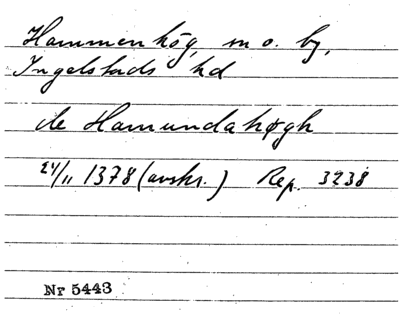 Hammenhög, sn o. by,
Ingelstads hd
de Hamundahøgh
24/11 1378 (avskr.) Rep. 3238
Nr 5443